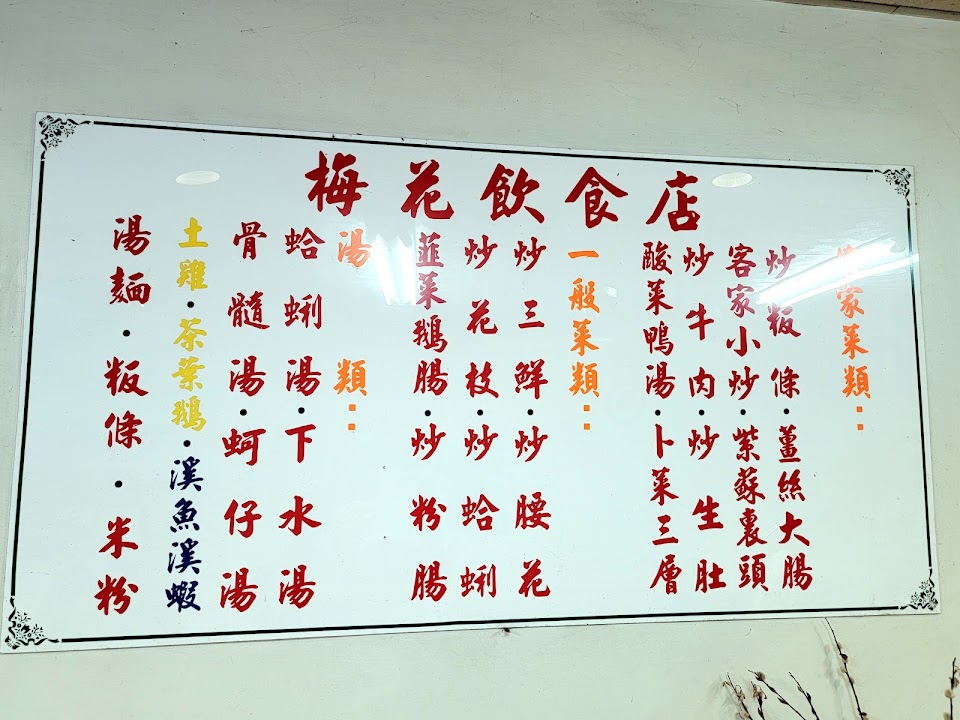 梅花飲食店
客家菜類：
炒粄條·薑絲大腸
客家小炒·紫蘇裏頭
炒牛肉·炒生肚
酸菜鴨湯·卜菜三層
一般菜類：
炒三鮮·炒腰花
炒花枝·炒蛤蜊
韮菜鵝腸·炒粉腸
湯類：
蛤蜊湯·下水湯
骨髓湯·蚵仔湯
土雞·茶葉鵝·溪魚溪蝦
湯麵·粄條·米粉